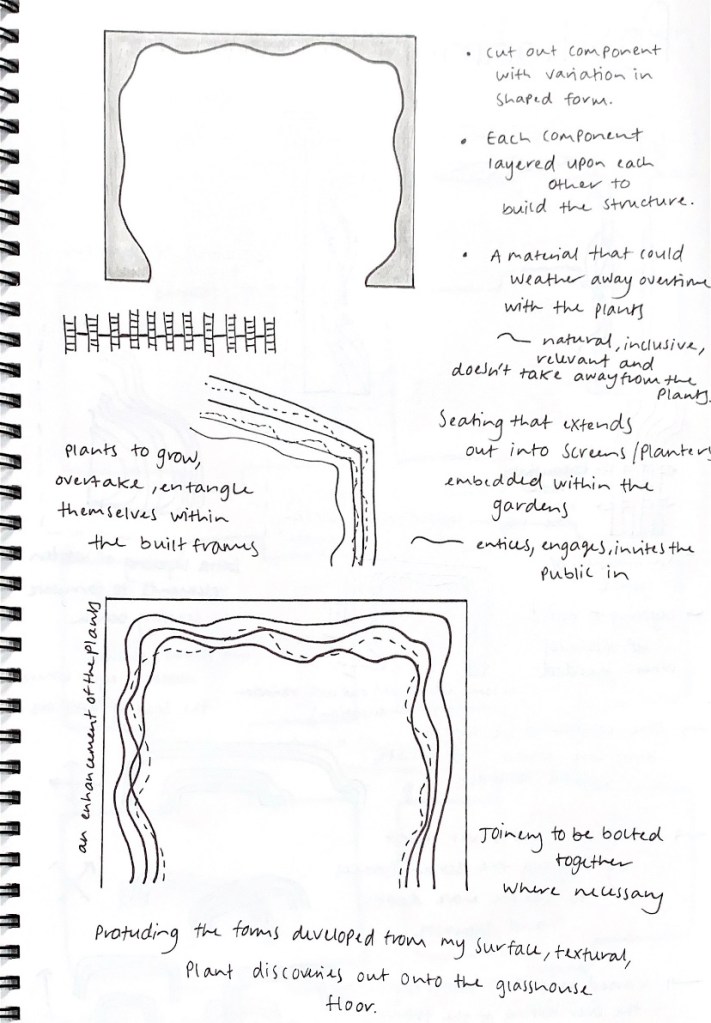 • Cut out component
with variation in
shaped form.
• Each component
layered upon each
other to
build the structure.
• A material that could
weather away overtime
with the plants
natural, inclusive,
relevant and
doesn't take away from the
plants.
Seating that extends
out into screens/planters
embedded within the
gardens
entices, engages, invites the
public in
plants to grow,
overtake, entangle
themselves within
the built frames
an enhancement of the plants
Joinery to be bolted
together
where necessary
Protuding the forms developed from my surface, textural,
plant discoveries out onto the glasshouse
floor.